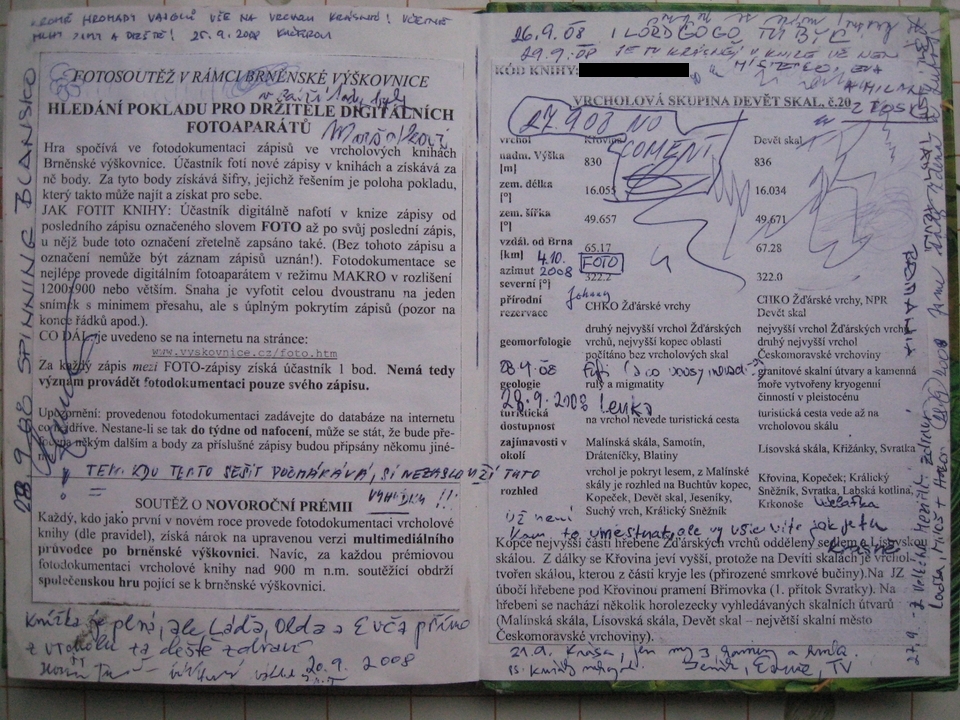 KROMĚ HROMADY VAJGLŮ VŠE NA VRCHOLU KRÁSNÉ! VČETNĚ
A DEŠTĚ! 25.9.2008
28.9.08 SPINNING BLANSKO
FOTOSOUTĚŽ V RÁMCI BRNĚNSKÉ VÝŠKOVNICE
HLEDÁNÍ POKLADU PRO DRŽITELE DIGITÁLNÍCH
FOTOAPARÁTŮ
Hra spočívá ve fotodokumentaci zápisů ve vrcholových knihách
Brněnské výškovnice. Účastník fotí nové zápisy v knihách a získává za
ně body. Za tyto body získává šifry, jejichž řešením je poloha pokladu,
který takto může najít a získat pro sebe.
JAK FOTIT KNIHY: Účastník digitálně nafotí v knize zápisy od
posledního zápisu označeného slovem FOTO až po svůj poslední zápis,
u nějž bude toto označení zřetelně zapsáno také. (Bez tohoto zápisu a
označení nemůže být záznam zápisů uznán!). Fotodokumentace se
nejlépe provede digitálním fotoaparátem v režimu MAKRO v rozlišení
1200x900 nebo větším. Snaha je vyfotit celou dvoustranu na jeden
snímek s minimem přesahu, ale s úplným pokrytím zápisů (pozor na
konce řádků apod.).
CO DÁL: je uvedeno se na internetu na stránce:
www.vyskovnice.cz/foto.htm
Za každý zápis mezi FOTO-zápisy získá účastník 1 bod. Nemá tedy
význam provádět fotodokumentaci pouze svého zápisu.
Upozornění: provedenou fotodokumentaci zadávejte do databáze na internetu
co nejdříve. Nestane-li se tak do týdne od nafocení, může se stát, že bude pře-
psána někým dalším a body za příslušné zápisy budou připsány někomu jiné-
! TEN, KDO TENTO SEŠIT POČMÁRÁVÁ, SI NEZASLOUŽÍ TUTO
VÝHIDKU !!!
SOUTĚŽ O NOVOROČNÍ PRÉMII
Každý, kdo jako první v novém roce provede fotodokumentaci vrcholové
knihy (dle pravidel), získá nárok na upravenou verzi multimediálního
průvodce po brněnské výškovnici. Navíc, za každou prémiovou
fotodokumentaci vrcholové knihy nad 900 m n.m. soutěžící obdrží
společenskou hru pojící se k brněnské výškovnici.
Knížka je plná, ale Láďa, Olda a Evča přímo
z vrcholu za deště zdraví
20.9.2008
26.9.08 I LORD GOGO TU BYL
29.9.08 JE TU KRÁSNĚ, V KNIZE UŽ NENÍ
MÍSTEČKO, EVA
A MILAN
KÓD KNIHY:
VRCHOLOVÁ SKUPINA DEVĚT SKAL, č.20
27.9.08 NO
COMENT
vrchol Křovina Devět skal
nadm. Výška [m] 830 836
zem. délka [°] 16.055 16.034
zem. šířka [°] 49.657 49.671
vzdál. od Brna [km] 65.17 67.28
4.10. 2008 FOTO
azimut severní [°] 322.2 322.0
přírodní rezervace CHKO Žďárské vrchy CHKO Žďárské vrchy, NPR Devět skal
geomorfologie druhý nejvyšší vrchol Žďárských vrchů, nejvyšší kopec oblasti počítáno bez vrcholových skal nejvyšší vrchol Žďárských vrchů, druhý nejvyšší Českomoravské vrchoviny
geologie ruly a migmatity granitové skalní útvary a kamenná moře vytvořeny kryogenní činností v pleistocénu
28.9.2008 Lenka
turistická dostupnost na vrchol nevede turistická cesta turistická cesta vede až na vrcholovou skálu
zajímavosti v okolí Malínská skála, Samotín, Dráteníčky, Blatiny Lisovská skála, Křižánky, Svratka
rozhled vrchol je pokryt lesem, z Malínské skály je rozhled na Buchtův kopec, Kopeček, Devět skal, Jeseníky, Suchý vrch, Králický Sněžník Křovina, Kopeček, Králický Sněžník, Svratka, Labská kotlina, Krkonoše
Už není
kam to umestnat, ale vy všici víte jak je tu
krásně
Kopec nejvyšší části hřebene Žďárských vrchů oddělený sedlem o Lisovskou
skálou. Z dálky se Křovina jeví vyšší, protože na Devíti skalách je vrchol
tvořen skálou, kterou z části kryje les (přirozené smrkové bučiny).Na JZ
úbočí hřebene pod Křovinou pramení Břímovka (1. přítok Svratky). Na
hřebeni se nachází několik horolezecky vyhledávaných skalních útvarů
(Malínská skála, Lisovská skála, Devět skal – největší skalní město
Českomoravské vrchoviny).
21.9. Krása, jen my 3,